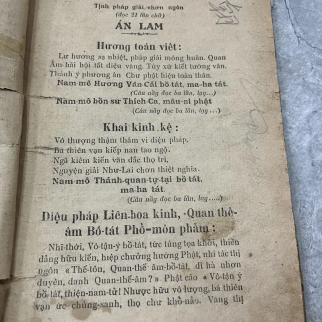 Tịnh pháp giải chơn ngôn
(đọc 21 lần chữ)
ÁN LAM
Hương toán viết:
Lư hương sạ nhiệt, pháp giải mông huân. Quan
Âm hải hội tất diệu vàng. Tùy xứ kiết tường vân.
Thành ý phương ân Chư phật hiện toàn thân.
Nam-mô Hương Vân-Cái bồ-tát, ma-ha-tát.
(Câu này đọc ba lần, lạy...)
Nam-mô bổn sư Thích-Ca, mâu-ni phật
(Câu nầy đọc ba lần, lạy...)
Khai kinh kệ:
Vô thượng thậm thâm vi diệu pháp,
Ba thiên vạn kiếp nan tao ngộ,
Ngã kiêm kiến văn đắc thọ trì,
Nguyện giải Như-Lai chơn thiệt nghĩa.
Nam-mô Thánh-quan-tự-tại bồ tát,
ma-ha tát.
(Câu nầy đọc ba lần, lạy...)
Diệu pháp Liên-hoa kinh, Quan thế-
âm Bồ-tát Phổ-môn phẩm:
Nhĩ-thời, Vô-tận-ý bồ-tát, tức tùng tọa khởi, thiên
đảng hữu kiên, hiệp chưởng hướng Phật, nhi tác thị
ngôn « Thế-tôn, Quan-thế âm-bồ-tát, dĩ hà nhơn
duyên, danh Quan-thế-âm? » Phật cáo « Vô-tận ý
bồ-tát, thiện-nam-tử! Nhược hữu vô lượng, bá thiên
vạn ức chúng-sanh, thọ chư khổ-não. Văng thị